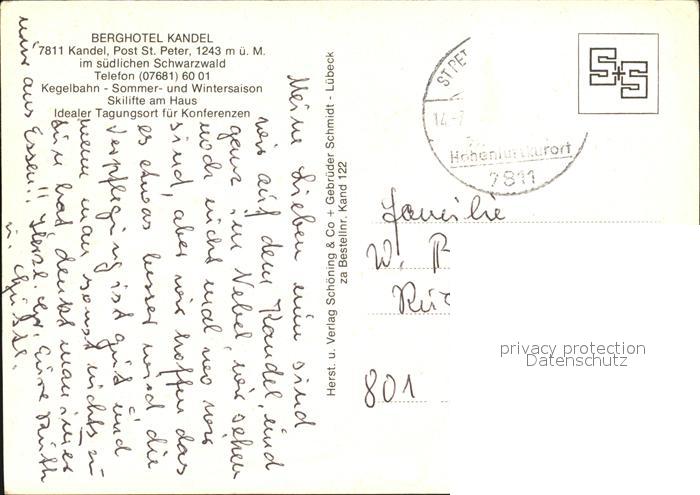 BERGHOTEL KANDEL
7811 Kandel, Post St. Peter, 1243 m ü. M.
im südlichen Schwarzwald
Telefon (07681) 60 01
Kegelbahn - Sommer- und Wintersaison
Skilifte am Haus
Idealer Tagungsort für Konferenzen
Meine Lieben nun sind
wir auf dem Kandel, und
ganz im Nebel, wir sehen
noch nicht mal wo wir
sind, aber wir hoffen das
es etwas besser wird die
Verpflegung ist gut und
wenn man sonst nichts zu
tun hat denkt man immer
nur ans Essen!! Herzl. Gr. Eure
u.
Herst. u. Verlag Schöning & Co + Gebrüder Schmidt - Lübeck
za Bestellnr. Kand 122
ST. PET
14.-7
Höhenluftkurort
7811
S+S
Familie
W. P
801
privacy protection
Datenschutz